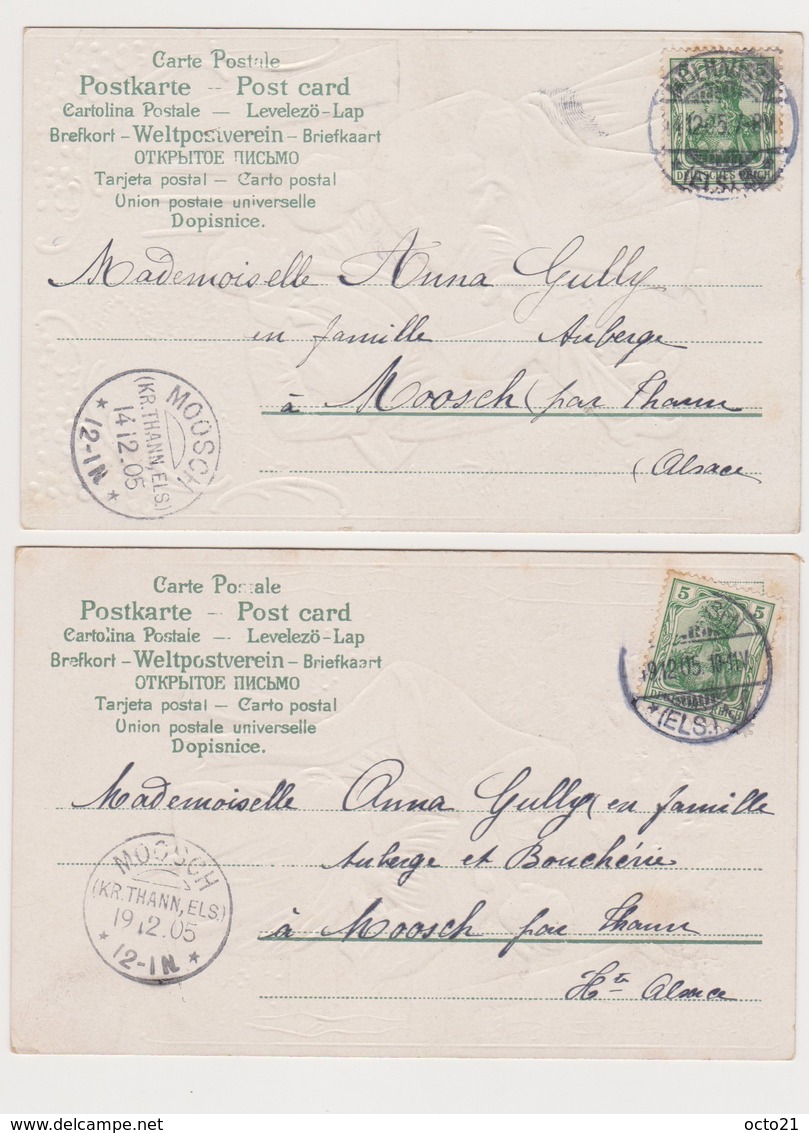 Carte Postale
Postkarte -- Post card
Cartolina Postale — Levelezö-Lap
Brefkort - Weltpostverein - Briefkaart
ОТКРЫТОЕ ПИСЬМО
Tarjeta postal — Carto postal
Union postale universelle
Dopisnice.
5
DEUTSCHES REICH
Mademoiselle Anna Gully
en famille Auberge
à Moosch (par Thann
(Alsace
MOOSCH
(KR. THANN, ELS.)
14 12.05
* 12-1N. *
Carte Postale
Postkarte -- Post card
Cartolina Postale — Levelezö-Lap
Brefkort - Weltpostverein - Briefkaart
ОТКРЫТОЕ ПИСЬМО
Tarjeta postal — Carto postal
Union postale universelle
Dopisnice.
5 5
19 12.05. 10-11V.
* (ELS.)
Mademoiselle Anna Gully (en famille
Auberge et Bouchérie
à Moosch par Thann
Hte Alsace
MOOSCH
(KR. THANN, ELS.)
19 12.05
* 12-1N. *
delcampe.net
octo21